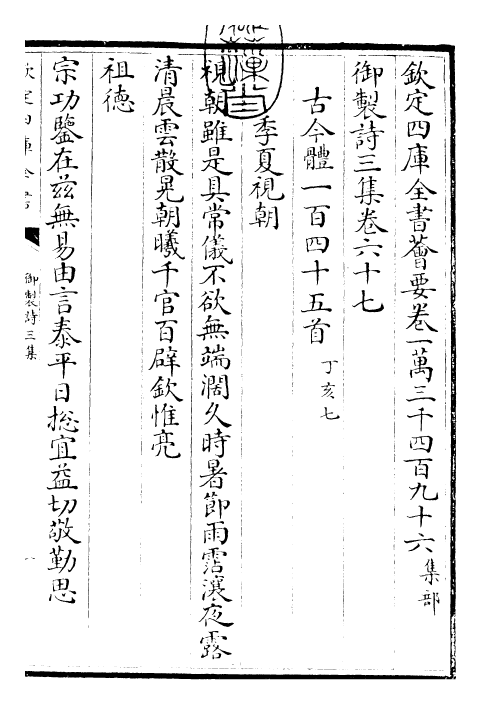 欽定四庫全書薈要卷一萬三千四百九十六 集部
御製詩三集卷六十七
古今體一百四十五首 丁亥七
季夏視朝
視朝雖是具常儀不欲無端濶久時暑節雨霑瀼夜露
清晨雲散晃朝曦千官百辟欽惟亮
祖德
宗功鑒在兹無易由言泰平日揔宜益切敬勤思
欽定四庫全書
御製詩三集
一